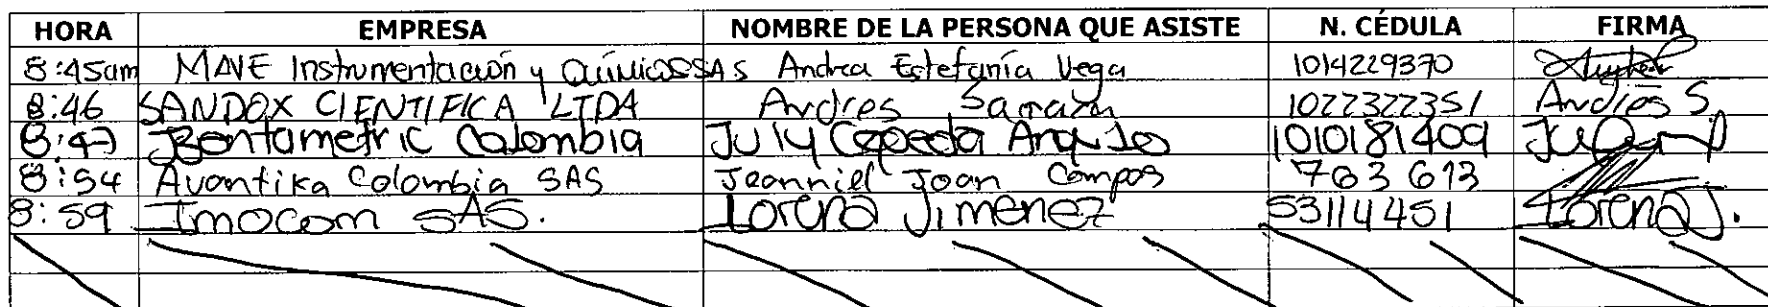 HORA EMPRESA NOMBRE DE LA PERSONA QUE ASISTE N. CÉDULA FIRMA
8:45am MAVE Instrumentación y Químicos SAS Andrea Estefanía Vega 1014229370
8:46 SANDOX CIENTIFICA LTDA Andres 1022322351 Andres S.
8:47 Bentametric Colombia July Cepeda 1010181409
8:54 Avantika Colombia SAS Jeanniel Joan Campos 763613
8:59 Imocom SAS. Lorena Jimenez 53114451 Lorena J.